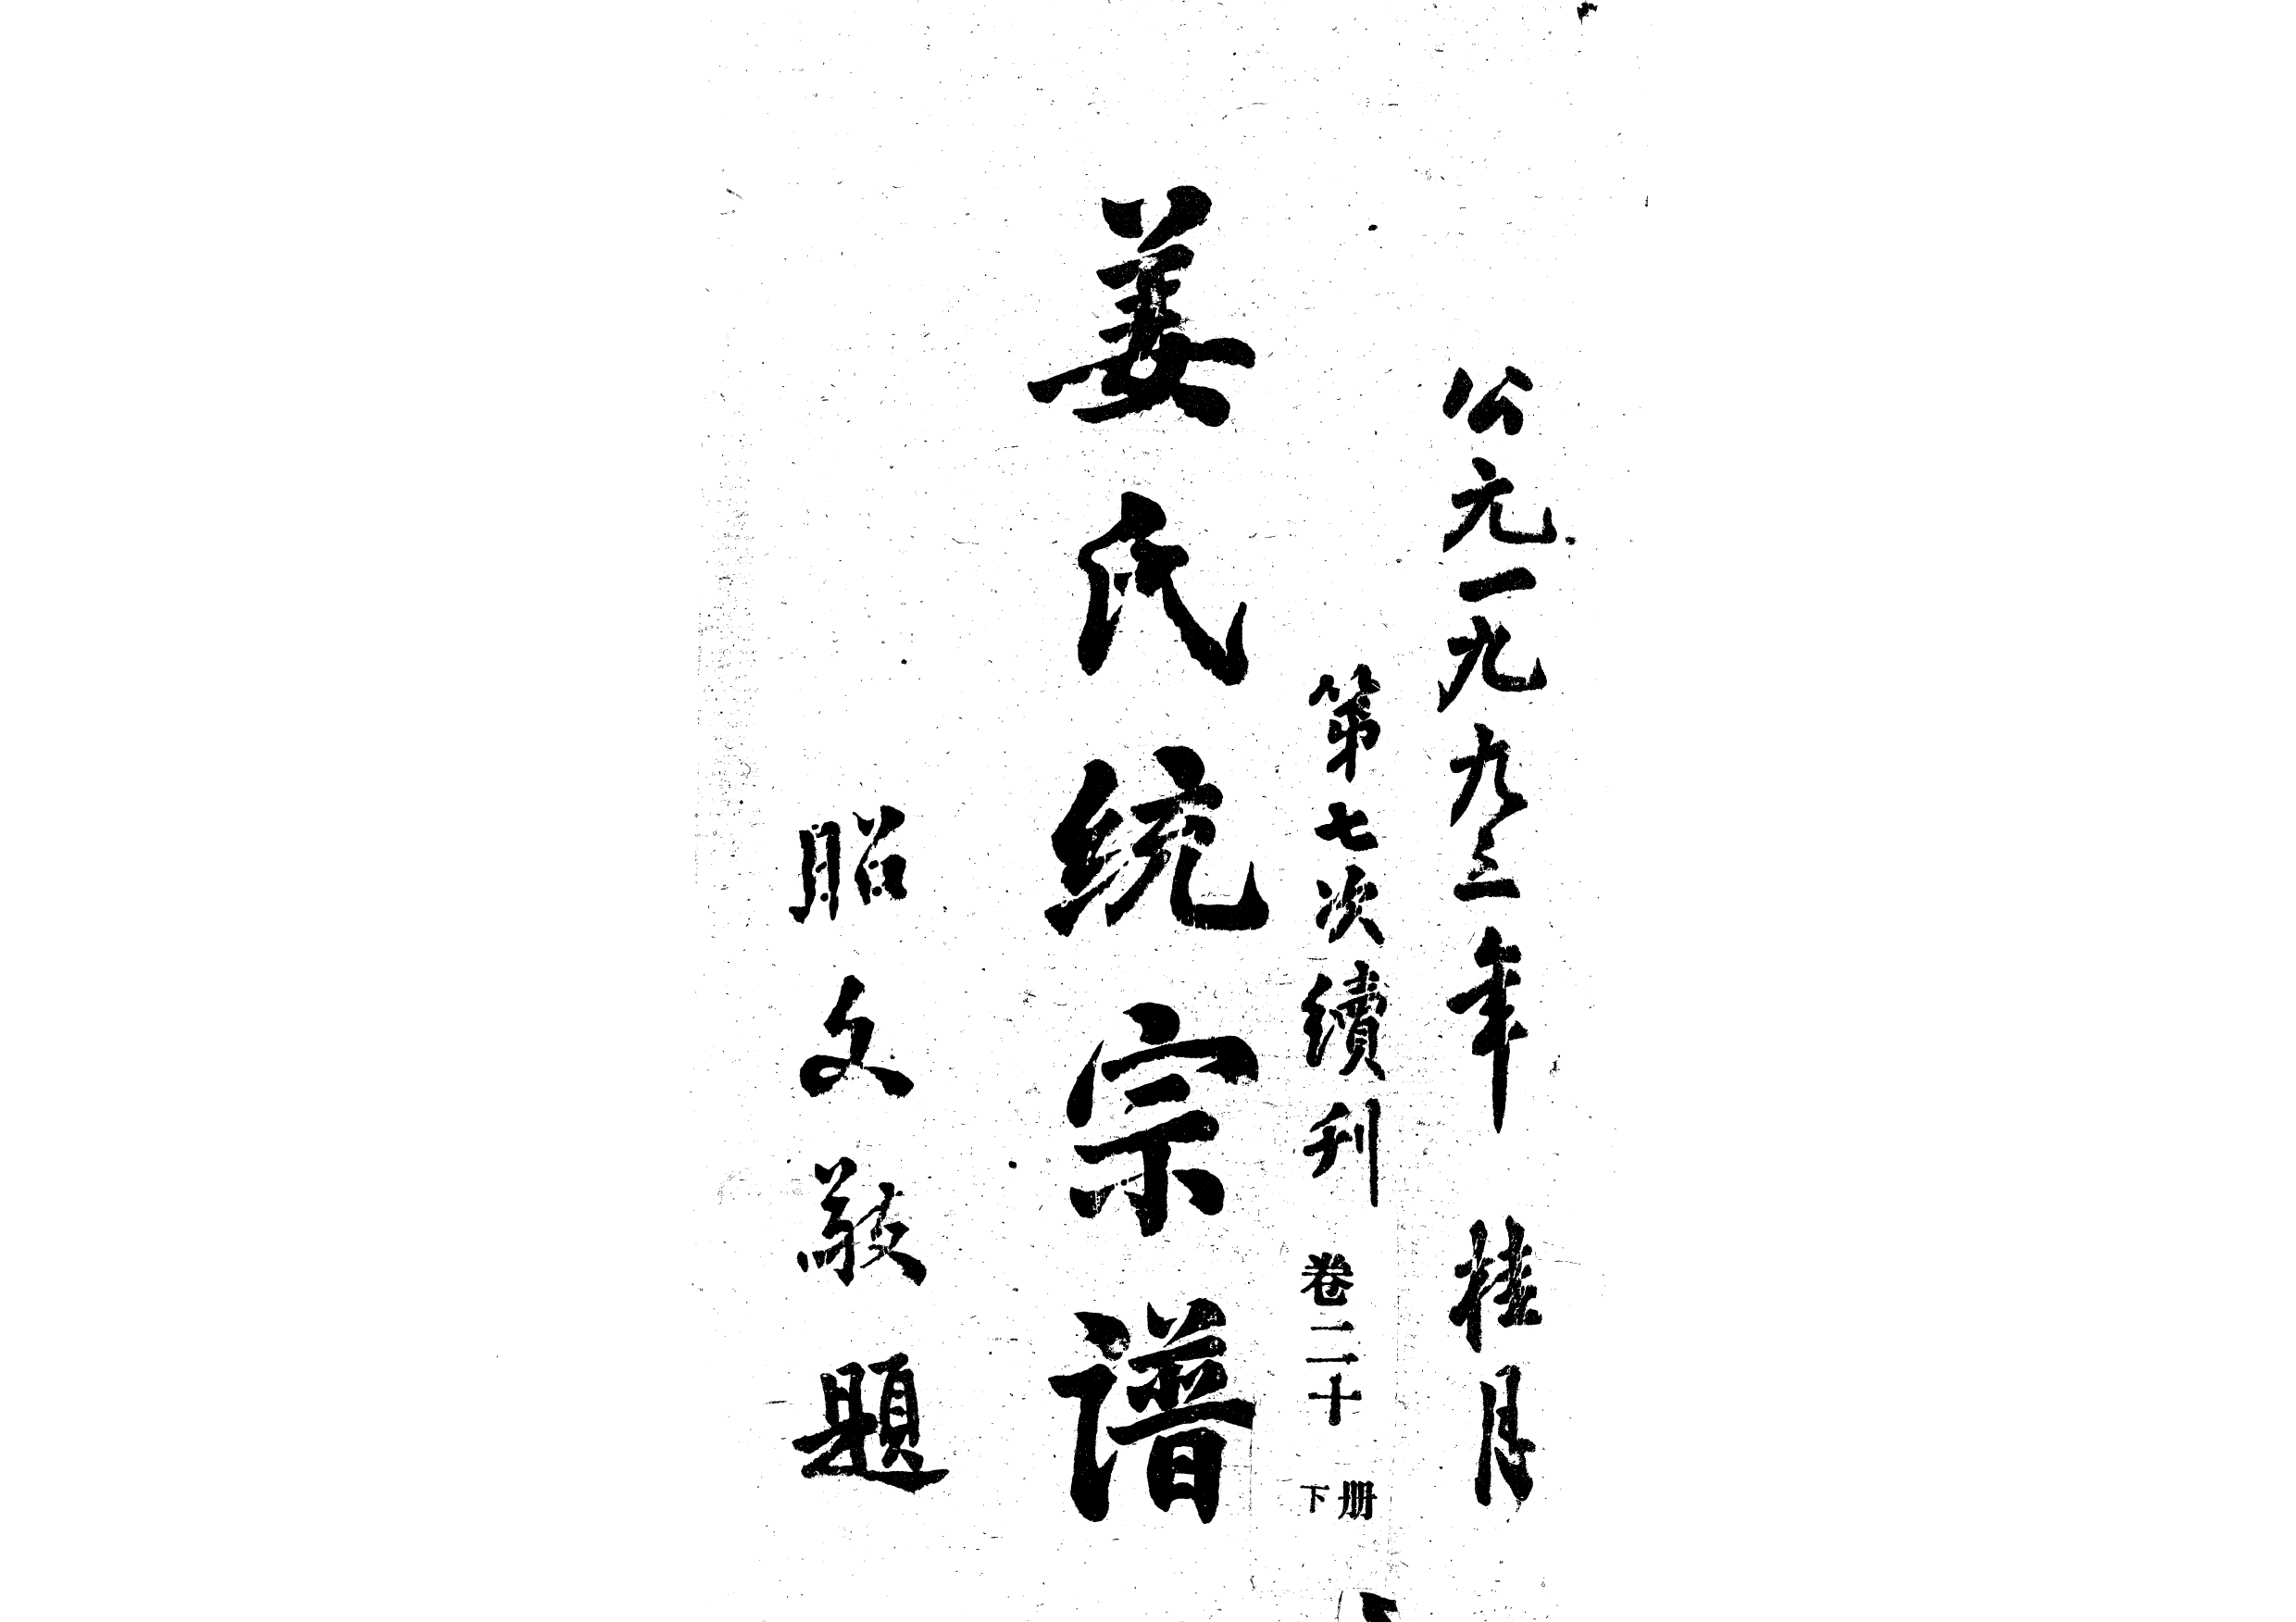 公元一九九三年 桂月
第七次續刊 卷二十 下册
姜氏统宗谱
昭文敬題